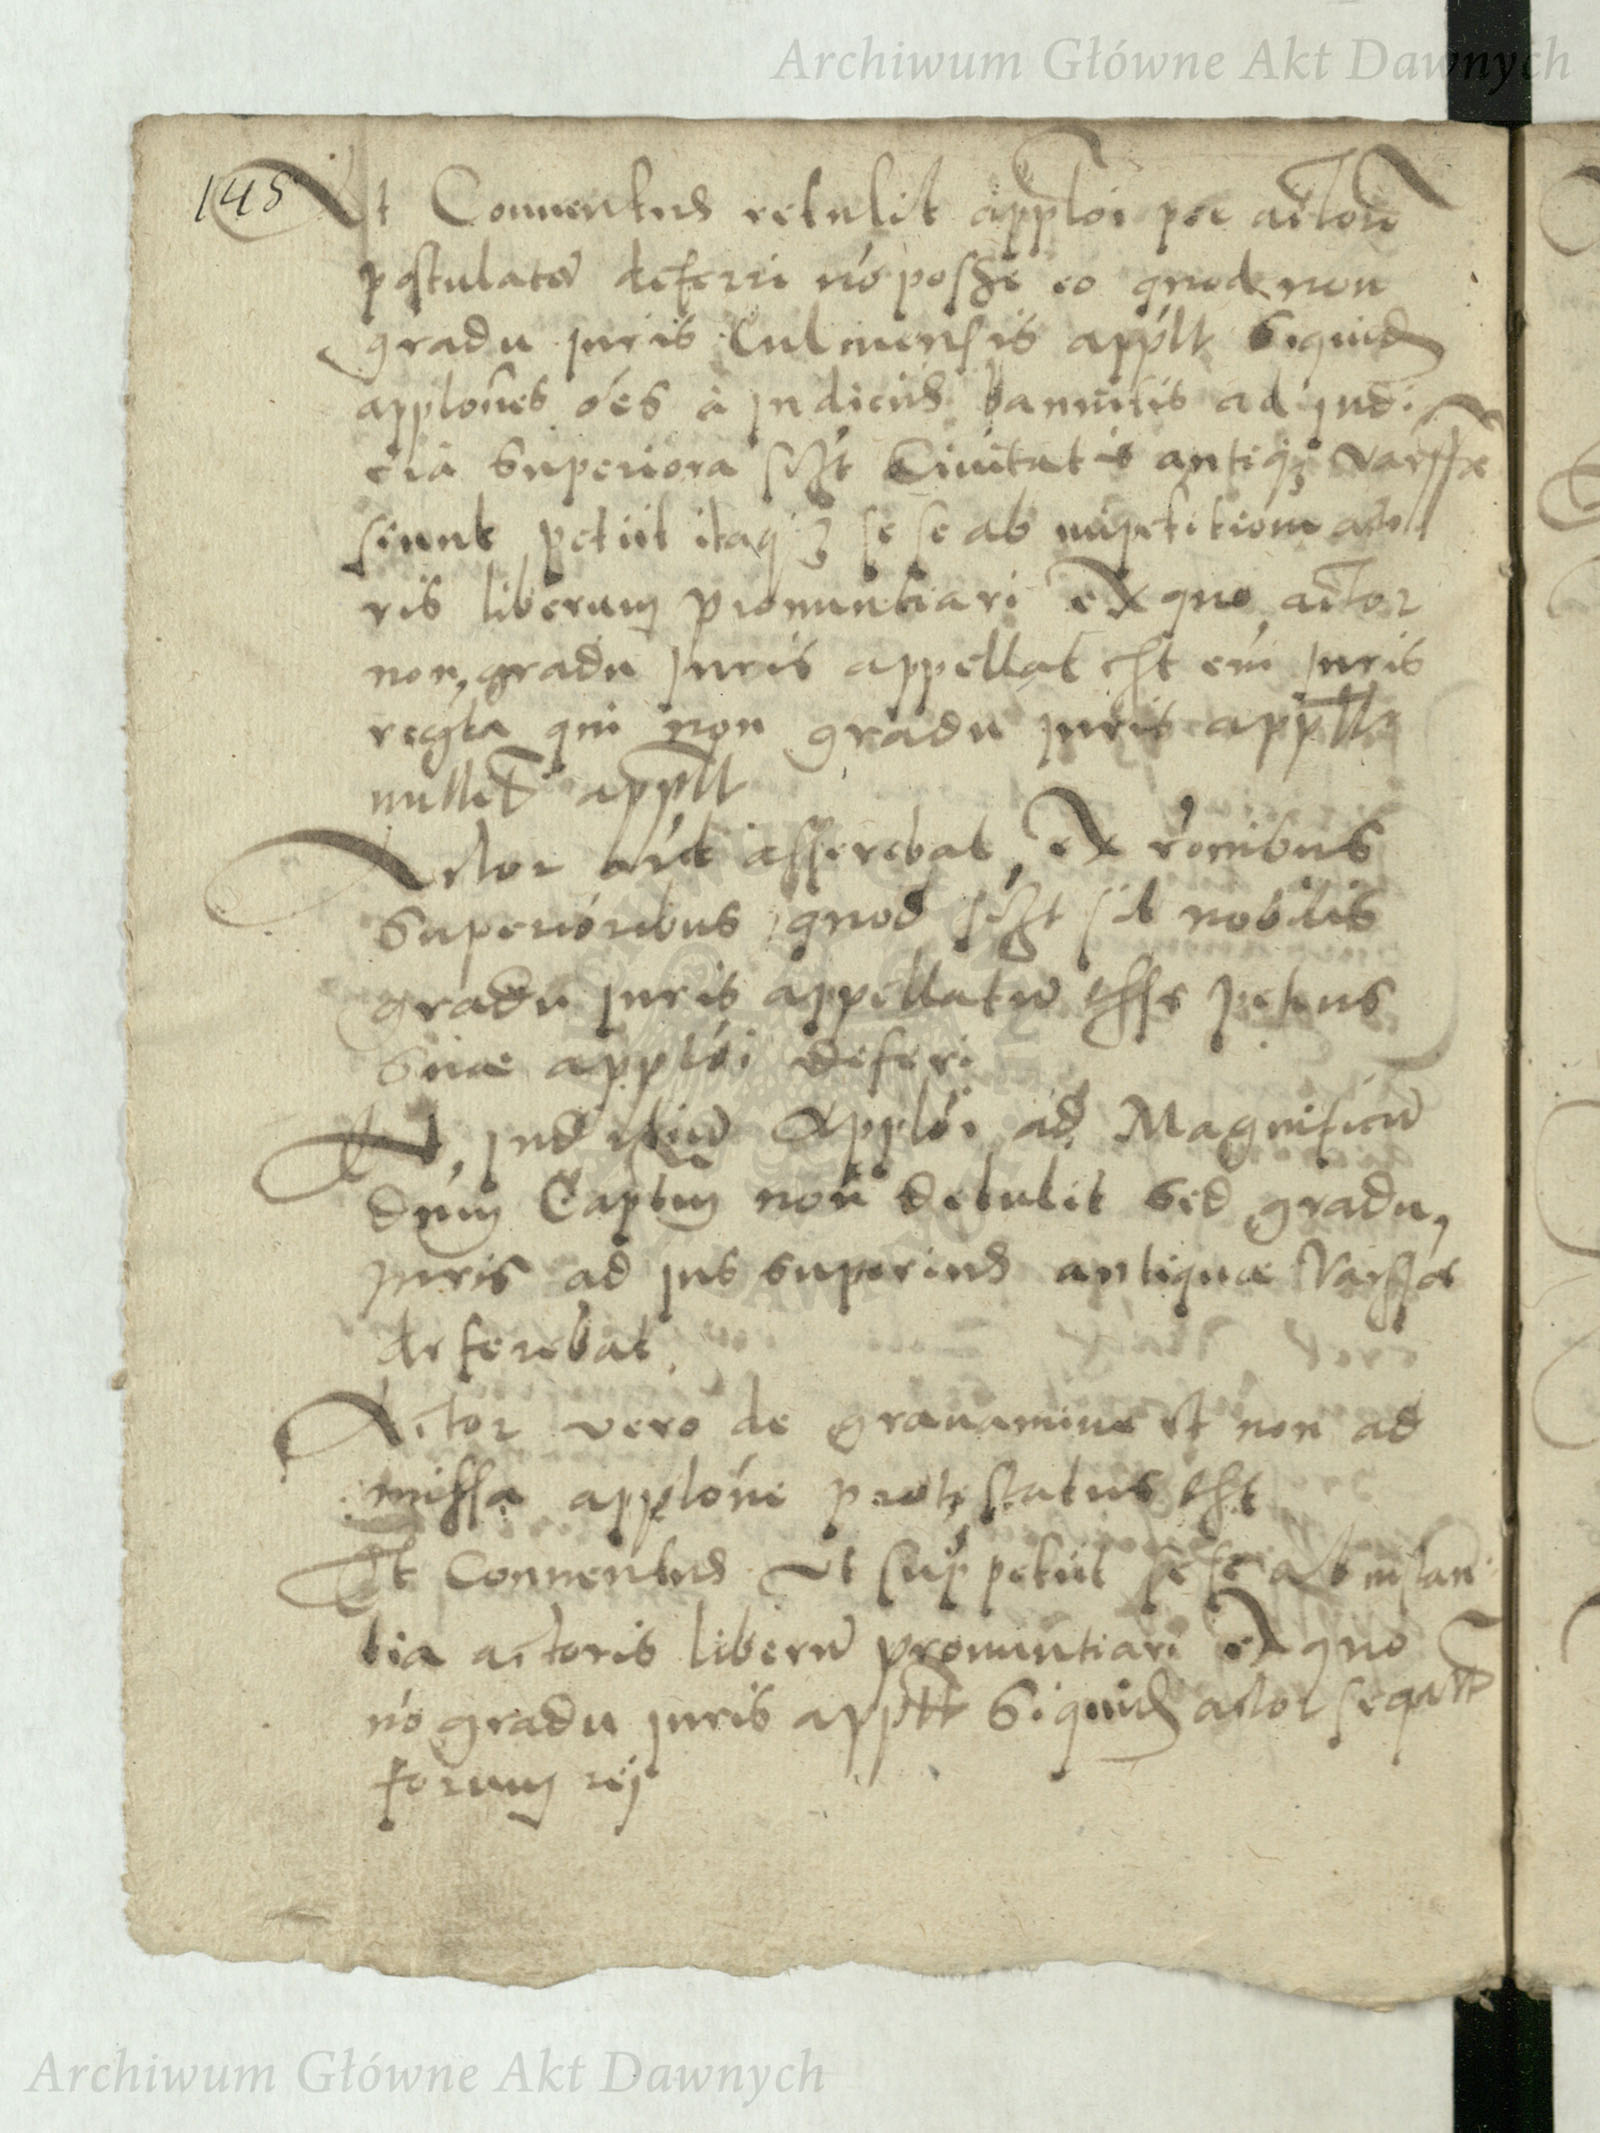 Archiwum Główne Akt Dawnych
148
Ut Conventus retulit applōi per actorē
postulatæ deferri nō posse eo quod non
gradu juris Culmensis applt Siquid
applōnes ōes à judiciis bannitis ad judi
cia Superiora sczt Civitatis antiqz Varssæ
fiunt petiit itaqz sese ab impetitione acto
ris liberum pronuntiari ex quo actor
non gradu juris appellat est eni juris
regla qui non gradu juris appellt
appllt
Actor aut asserebat ex rōnibus
Superioribus quod sczt sit nobilis
gradu juris appellatū esse petens
Suæ applōi deferi
At juditiū Applōi ad Magnificū
dnum Captm non detulit sed gradu
juris ad jus superius antiquæ Varssæ
deferebat
Actor vero de gravamine et non ad
missa applōne protestatus est
Et Conventus Ut sup petiit sese ab instan
tia actoris liberū pronuntiari ex quo
nō gradu juris appllt Siquid actor
forum rej
Archiwum Główne Akt Dawnych